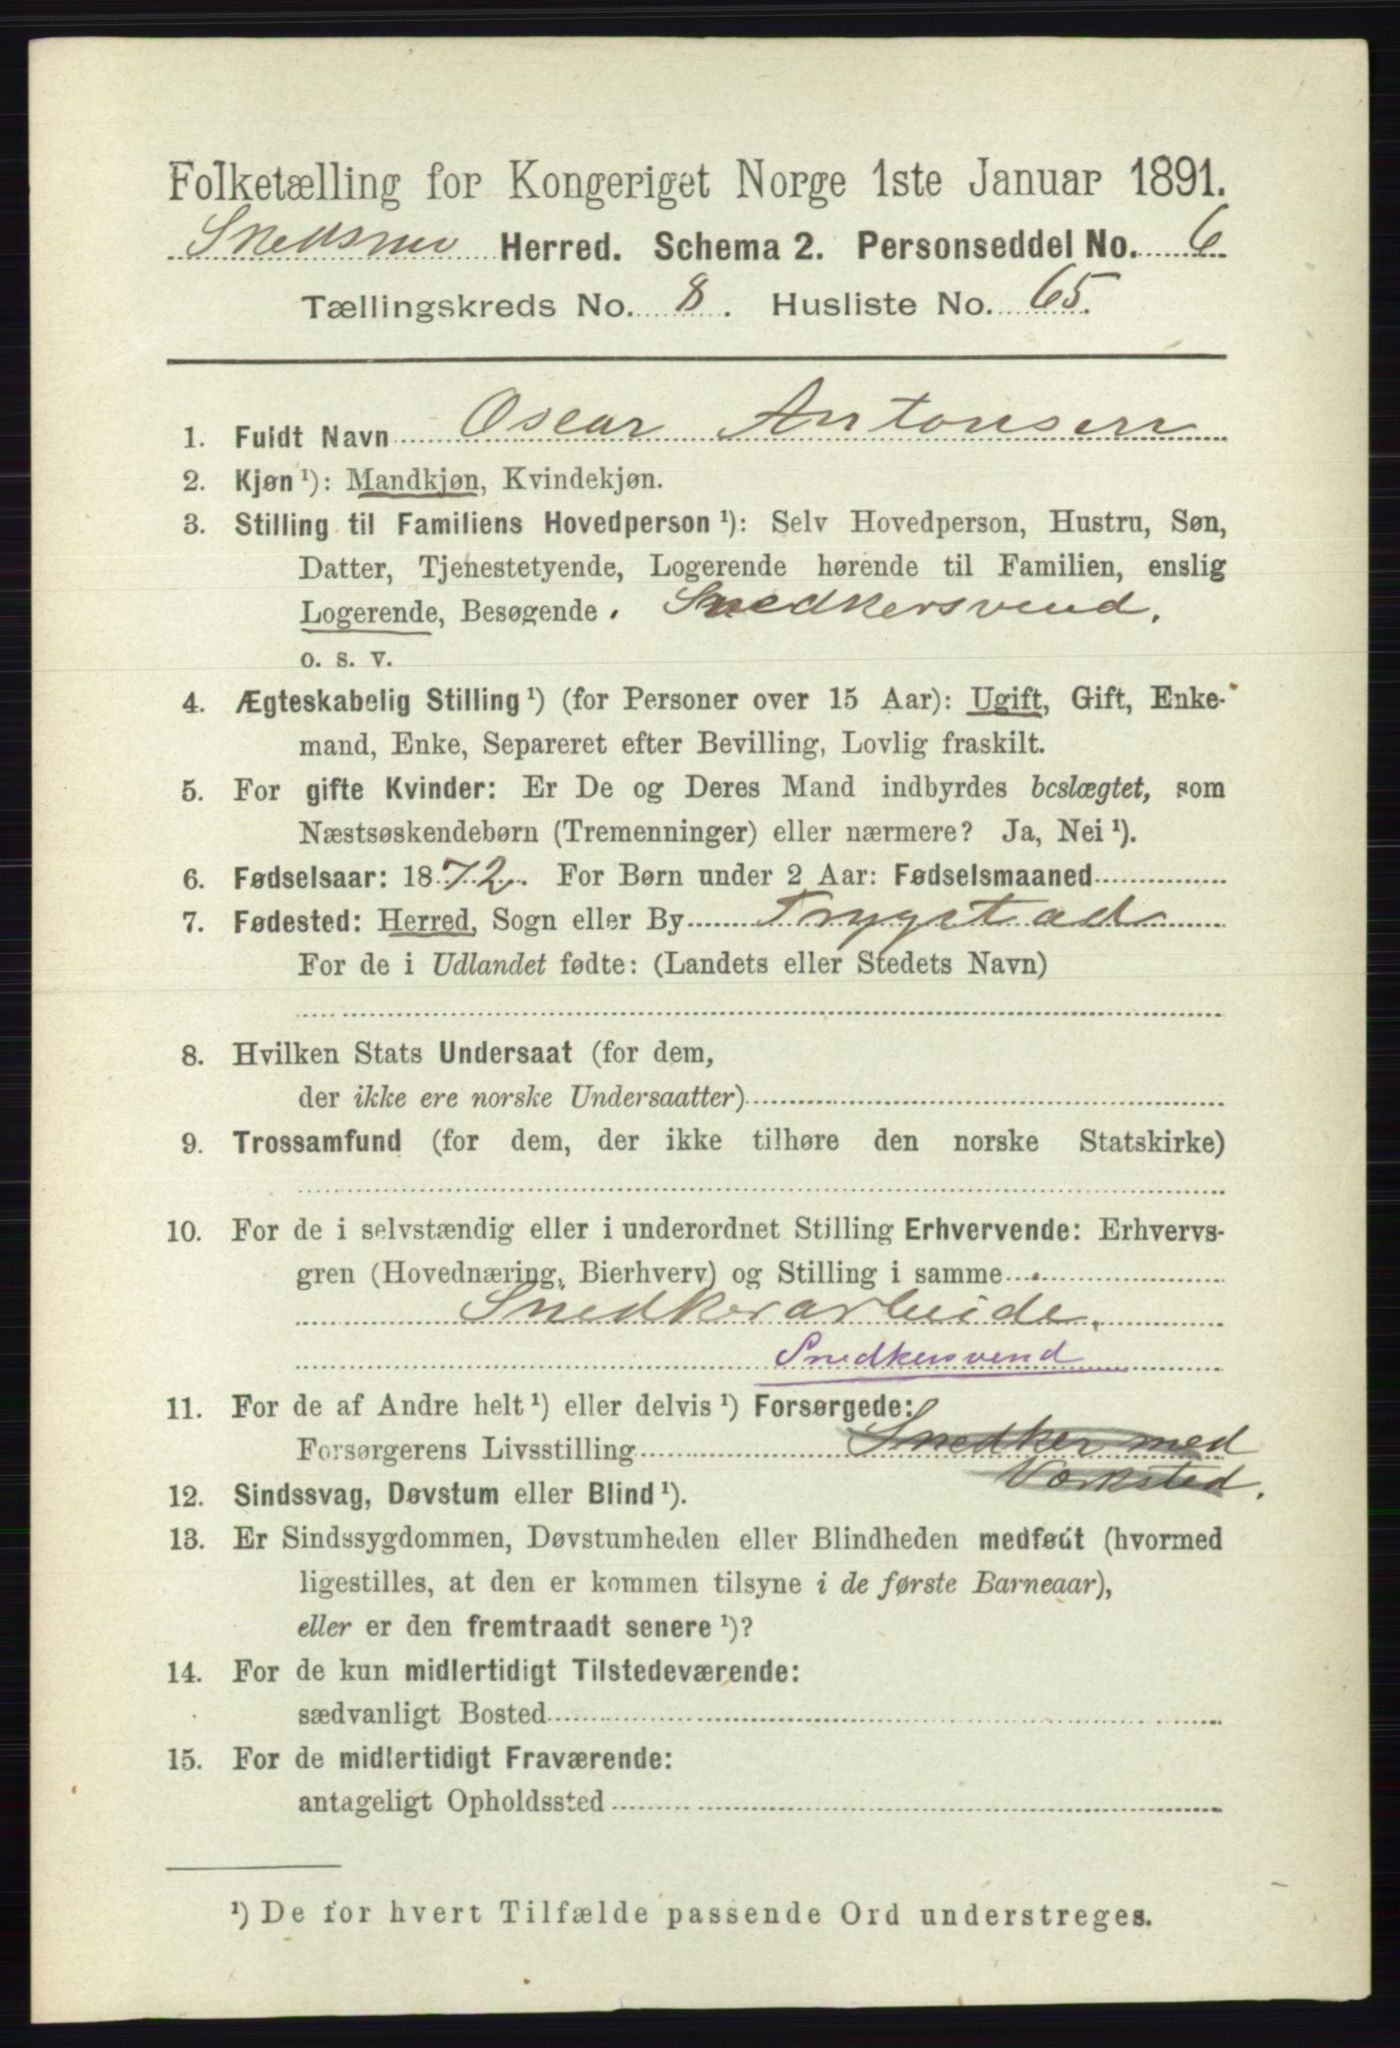 Folketælling for Kongeriget Norge 1ste Januar 1891.
Skedsmo Herred. Schema 2. Personseddel No. 6
Tællingskreds No. 8. Husliste No. 65.
1. Fuldt Navn Oscar Antonsen
2. Kjøn ¹): Mandkjøn, Kvindekjøn.
3. Stilling til Familiens Hovedperson ¹): Selv Hovedperson, Hustru, Søn,
Datter, Tjenestetyende, Logerende hørende til Familien, enslig
Logerende, Besøgende. Snedkersvend.
o. s. v.
4. Ægteskabelig Stilling ¹) (for Personer over 15 Aar): Ugift, Gift, Enke-
mand, Enke, Separeret efter Bevilling, Lovlig fraskilt.
5. For gifte Kvinder: Er De og Deres Mand indbyrdes beslægtet, som
Næstsøskendebørn (Tremenninger) eller nærmere? Ja, Nei ¹).
6. Fødselsaar: 1872. For Børn under 2 Aar: Fødselsmaaned
7. Fødested: Herred, Sogn eller By Trygstad
For de i Udlandet fødte: (Landets eller Stedets Navn)
8. Hvilken Stats Undersaat (for dem,
der ikke ere norske Undersaatter)
9. Trossamfund (for dem, der ikke tilhøre den norske Statskirke)
10. For de i selvstændig eller i underordnet Stilling Erhvervende: Erhvervs-
gren (Hovednæring, Bierhverv) og Stilling i samme
Snedkerarbeide.
Snedkersvend
11. For de af Andre helt ¹) eller delvis ¹) Forsørgede:
Forsørgerens Livsstilling Snedker med
Værksted.
12. Sindssvag, Døvstum eller Blind ¹).
13. Er Sindssygdommen, Døvstumheden eller Blindheden medfødt (hvormed
ligestilles, at den er kommen tilsyne i de første Barneaar),
eller er den fremtraadt senere ¹)?
14. For de kun midlertidigt Tilstedeværende:
sædvanligt Bosted
15. For de midlertidigt Fraværende:
antageligt Opholdssted
¹) De for hvert Tilfælde passende Ord understreges.